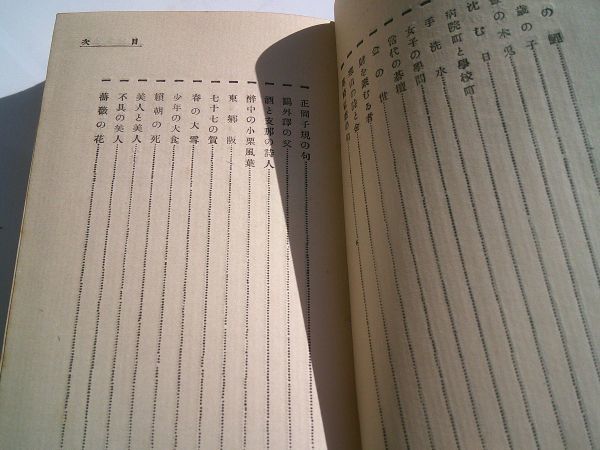 の鯉
歳の子
の木兎
沈む日
病院町と學校町
手洗水
女子の學問
當代の茶壇
の世
正岡子規の句
鷗外譯の父
酒と支那の詩人
醉中の小栗風葉
東郷阪
七十七の賀
春の大雪
少年の大食
賴朝の死
美人と美人
不具の美人
薔薇の花
目次